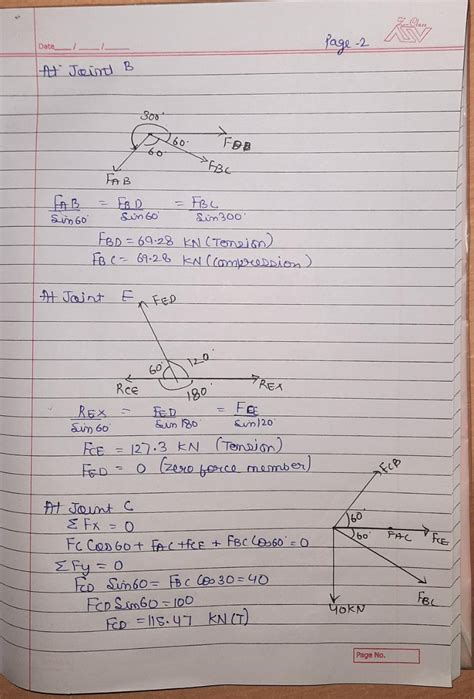 Date___/___/___
Page -2
At Joint B
300°
60°
60°
FBD
FBC
FAB
FAB/Sin60° = FBD/Sin60° = FBC/Sin300°
FBD = 69.28 KN (Tension)
FBC = 69.28 KN (Compression)
At Joint E
FED
60°
120°
RCE
180°
REX
REX/Sin60 = FED/Sin180° = FCE/Sin120
FCE = 127.3 KN (Tension)
FED = 0 (Zero force member)
At Joint C
ΣFx = 0
FC Cos60 + FAC + FCE + FBC Cos60° = 0
ΣFy = 0
FCD Sin60 = FBC Cos30 = 40
FCD Sin60 = 100
FCD = 115.47 KN(T)
FCB
60°
60°
FAC
FCE
FBC
40KN
Page No.